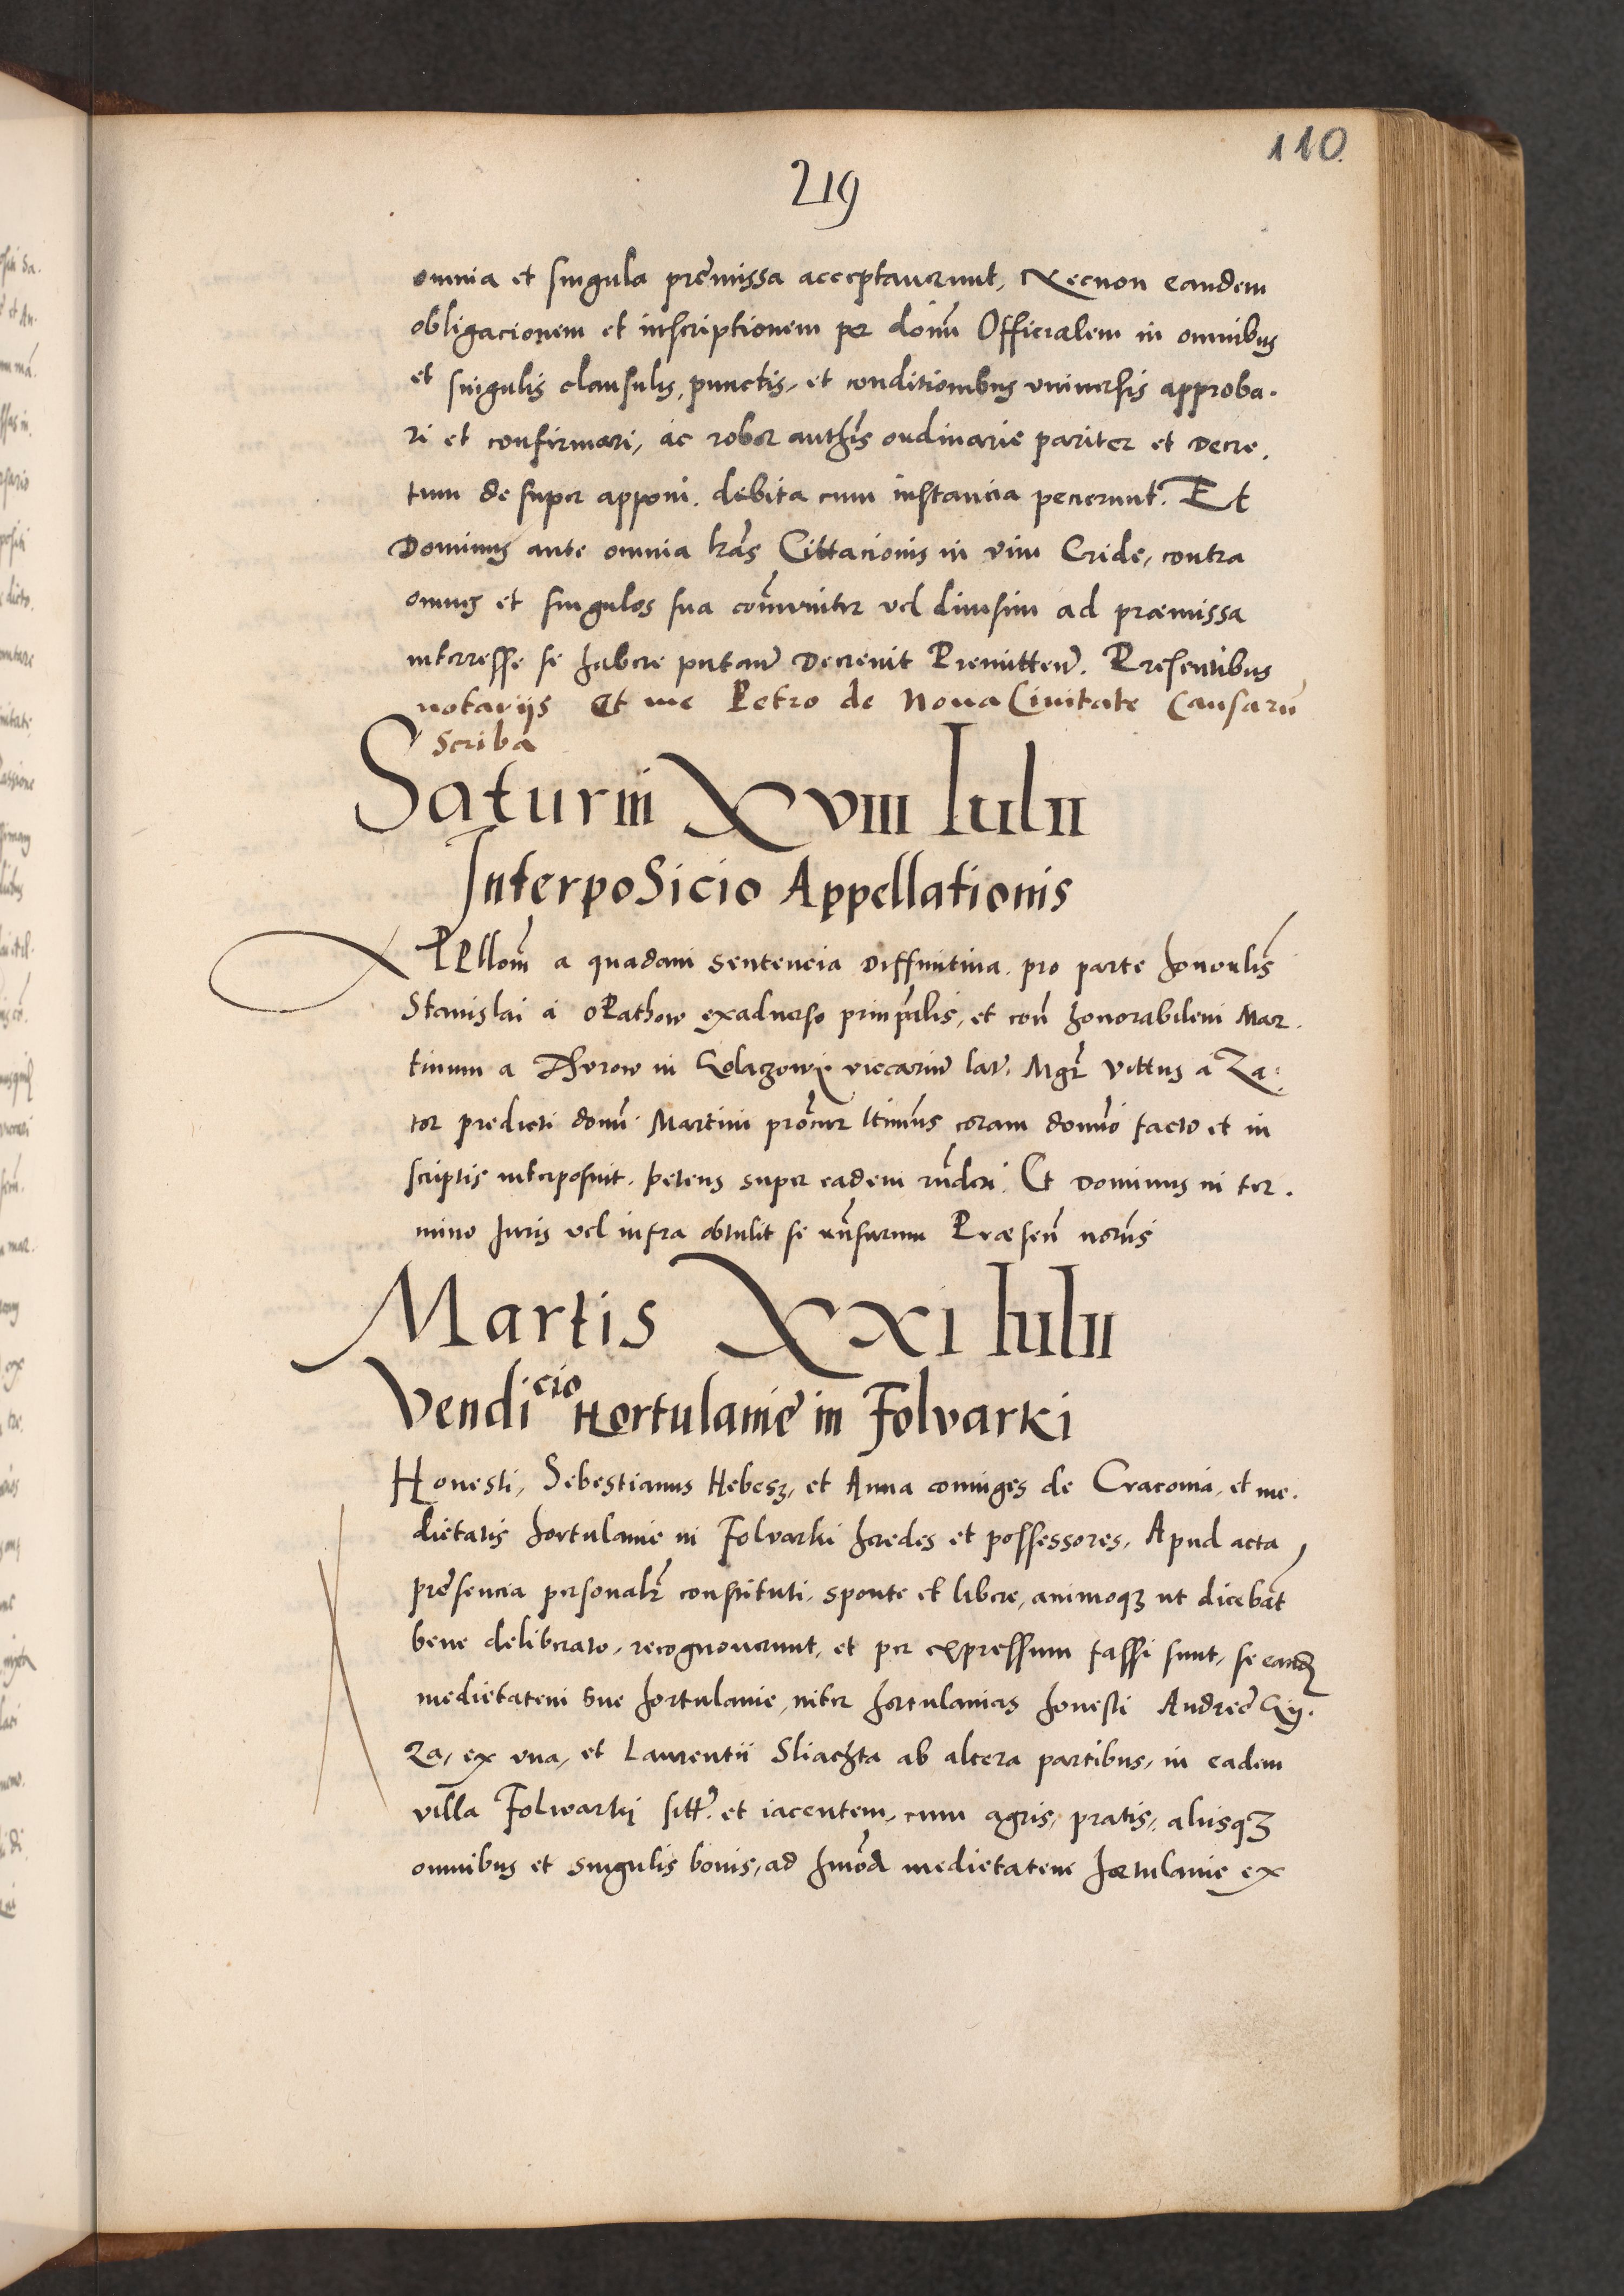 110.
219
omnia et singula premissa acceptaverunt, Necnon eandem
obligacionem et inscriptionem per donm Officialem in omnibus
et singulis clausulis, punctis, et conditionibus universis approba.
ri et confirmari, ac robor authis ordinarie pariter et Decre.
tum de super apponi. debita cum instancia pecierunt. Et
Dominus ante omnia lras Cittacionis in vim Cride, contra
omnes et singulos sua comuniter vel divisim ad praemissa
interresse se habere putan Decrevit Premitten. Presentibus
notariis Et me Petro de Nova Civitate Causaru
scriba
Saturni XVIII Iulii
InterpoSicio Appellationis
APPellom a quadam Sentencia Diffinitiva. pro parte honoulis
Stanislai a oPathow exadverso prinpalis, et con honorabilem Mar.
tinum a in vicarium lat. Mgr Vittus a Za:
tor predicti domi Martini procur ltimus coram domno facto et in
scriptis interposuit. petens super eadem rnderi. Et Dominus in ter.
mino Iuris vel infra obtulit se rnsurum Praesen notris
Martis XXI Iulii
Vendicio Hortulanie in Folvarki
Honesti, Sebestianus Hebesz, et Anna coniuges de Cracovia, et me.
dietatis hortulanie in Folvarki heredes et possessores, Apud acta
presencia personalr constituti, sponte et libere, animoq3 ut dicebat
bene deliberato, recognoverunt, et per expressum fassi sunt, se eand
medietatem sue hortulanie, inter hortulanias honesti Andree
za, ex una, et Laurentii Sliachta ab altera partibus, in eadem
villa Folwarkj sitt. et iacentem, cum agris, pratis, aliisq3
omnibus et singulis bonis, ad hmod medietatem hortulanie ex